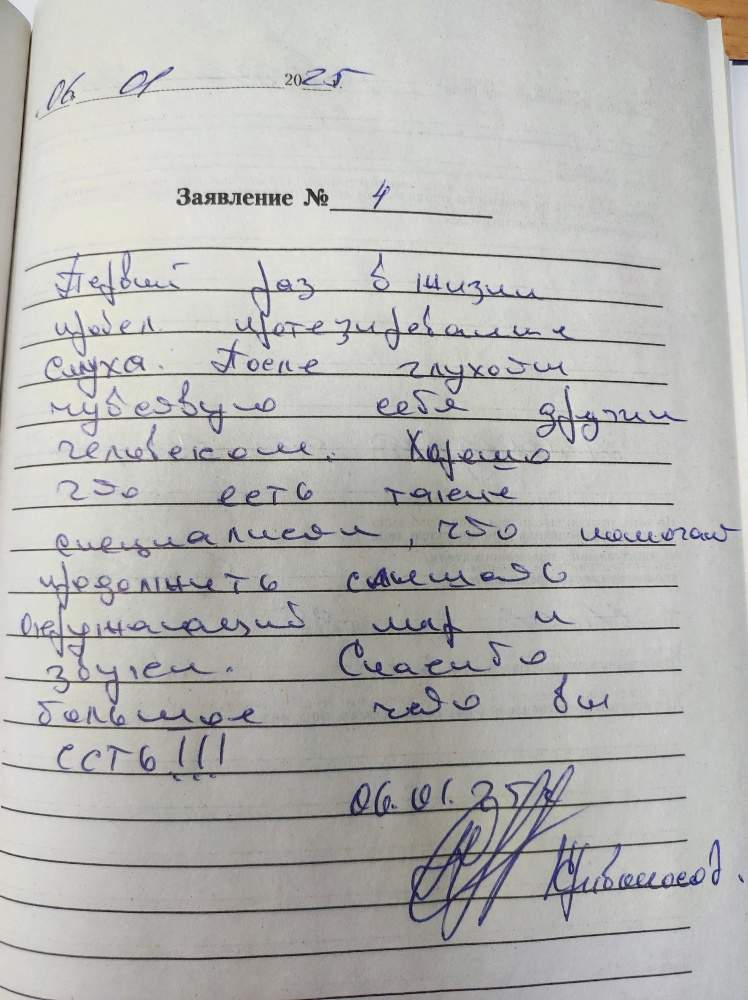 06. 01 2025 г.
Заявление № 4
Первий раз в жизни
провел протезирование
слуха. После глухоты
чувствую себя другим
человеком. Хорошо
что есть такие
специалисты, что помогают
продолжить слышать
окружающий мир и
звуки. Спасибо
большое что вы
есть!!!
06.01.25 г.
Кривоносов.